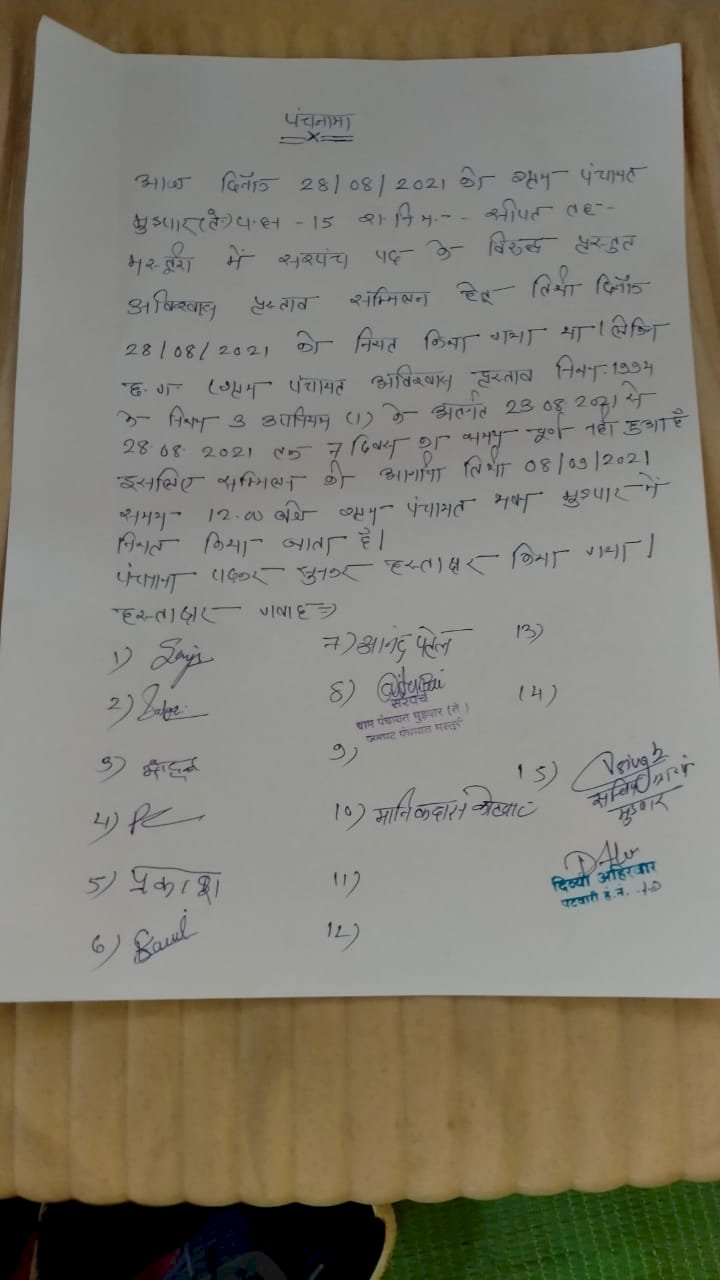 पंचनामा
आज दिनाँक 28/08/2021 को ग्राम पंचायत
मुड़पार(ते) प.ह.न -15 रा.नि.म.-- सीपत तह--
मस्तूरी में सरपंच पद के विरूध्द प्रस्तुत
अविश्वास प्रस्ताव सम्मिलन हेतु तिथी दिनाँक
28/08/2021 को नियत किया गया था। लेकिन
छ.ग (ग्राम पंचायत अविश्वास प्रस्ताव नियम.1994
के नियम 3 उपनियम (1) के अंतर्गत 23.08.2021 से
28.08.2021 तक 7 दिवस का समय पूर्ण नही हुआ है
इसलिए सम्मिलन की आगामी तिथी 08/09/2021
समय 12.00 बजे ग्राम पंचायत भवन मुड़पार में
नियत किया जाता है।
पंचनामा पढ़कर सुनकर हस्ताक्षर किया गया।
हस्ताक्षर गवाह⇒
1)
2)
3)
4)
5) प्रकाश
6)
7) आनंद पटेल
8)
सरपंच
ग्राम पंचायत मुड़पार (ते)
जनपद पंचायत मस्तुरी
9)
10) मानिकदास कोटवार
11)
12)
13)
14)
15)
सचिव
मुड़पार
दिव्या अहिरवार
पटवारी ह.नं.